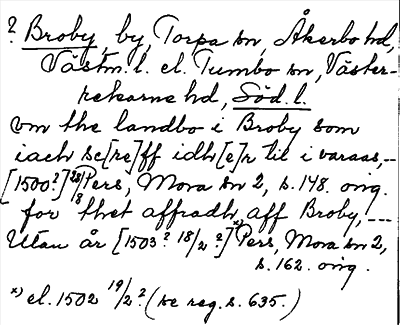 ? Broby, by, Torpa sn, Åkerbo hd,
Västm. l. el. Tumbo sn, Väster-
rekarne hd, Söd. l.
vm the landbo i Broby som
iach sc[re]ff idh[e]r til i varaas,--
[1500?] 28/8 Pers, Mora sn 2, s. 148. orig.
for thet affradh, aff Broby, ---
Utan år [1503? 18/2 ?] x) Pers, Mora sn 2,
s. 162. orig.
x) el. 1502 19/2 ? (se reg. s. 635.)